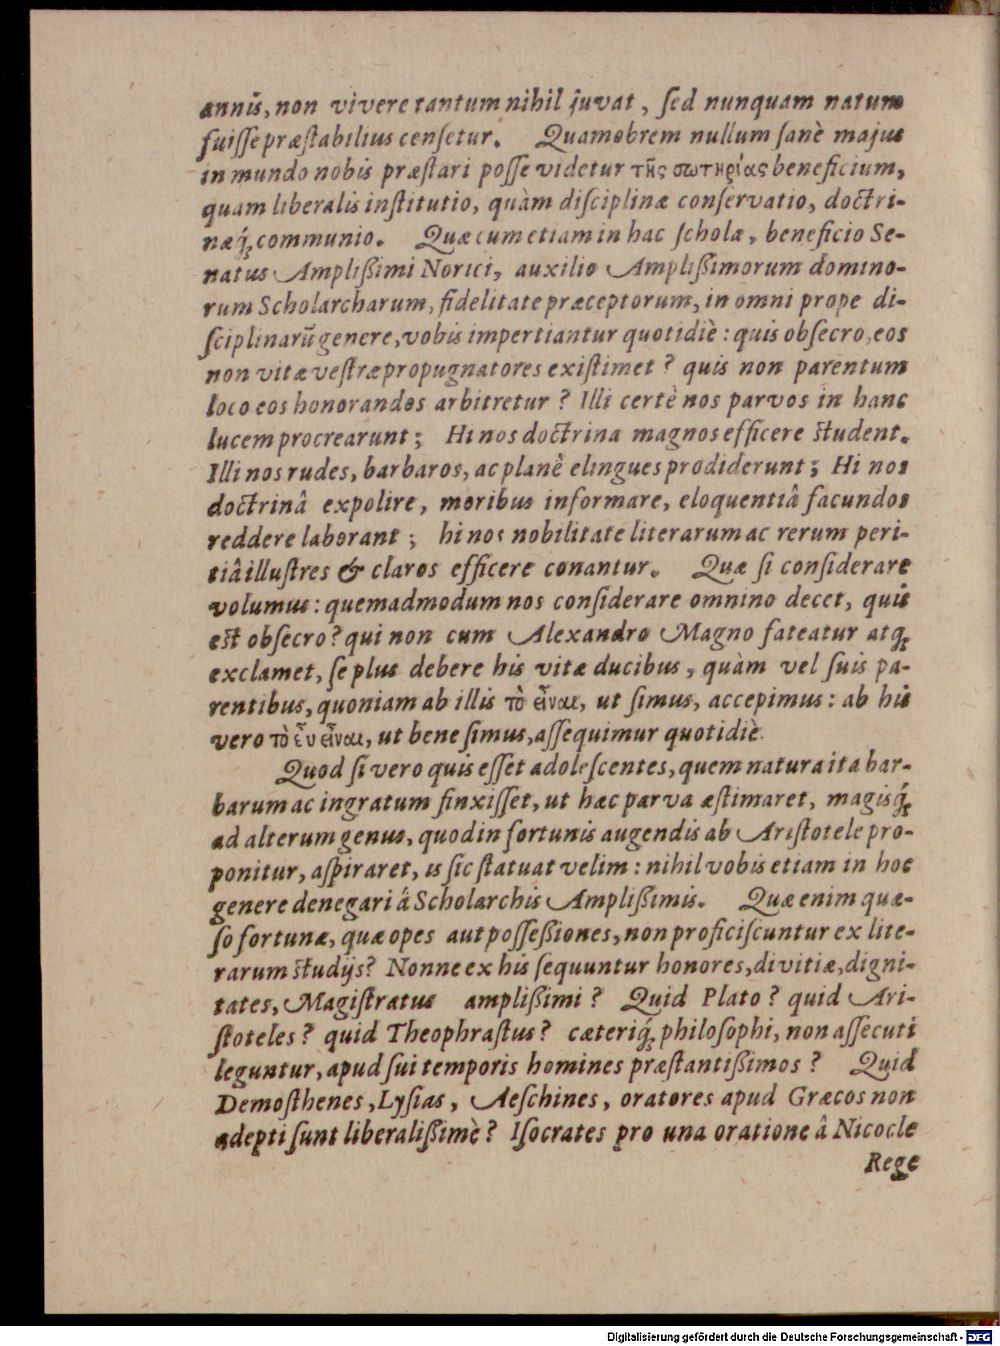 annis, non vivere tantum nihil juvat, ſed nunquam natum
fuiſſe præſtabilius cenſetur. Quamobrem nullum ſanè majus
in mundo nobis præſtari poſſe videtur τῆς σωτηρίας beneficium,
quam liberalis inſtitutio, quàm diſciplinæ conſervatio, doctri-
næq́; communio. Quæ cum etiam in hac ſchola, beneficio Se-
natus Ampliſsimi Norici, auxilio Ampliſsimorum domino-
rum Scholarcharum, fidelitate præceptorum, in omni prope di-
ſciplinarũ genere, vobis impertiantur quotidiè: quis obſecro, eos
non vitæ veſtræ propugnatores exiſtimet? quis non parentum
loco eos honorandos arbitretur? Illi certè nos parvos in hanc
lucem procrearunt; Hi nos doctrina magnos efficere ſtudent.
Illi nos rudes, barbaros, ac planè elingues prodiderunt; Hi nos
doctrinâ expolire, moribus informare, eloquentiâ facundos
reddere laborant; hi nos nobilitate literarum ac rerum peri-
tiâ illuſtres & claros efficere conantur. Quæ ſi conſiderare
volumus: quemadmodum nos conſiderare omnino decet, quis
eſt obſecro? qui non cum Alexandro Magno fateatur atq;
exclamet, ſe plus debere his vitæ ducibus, quàm vel ſuis pa-
rentibus, quoniam ab illis τὸ εἶναι, ut ſimus, accepimus: ab his
vero τὸ εὖ εἶναι, ut bene ſimus, aſſequimur quotidiè.
Quod ſi vero quis eſſet adoleſcentes, quem natura ita bar-
barum ac ingratum finxiſſet, ut hæc parva æſtimaret, magisq́;
ad alterum genus, quod in fortunis augendis ab Ariſtotele pro-
ponitur, aſpiraret, is ſic ſtatuat velim: nihil vobis etiam in hoc
genere denegari â Scholarchis Ampliſsimis. Quæ enim quæ-
ſo fortunæ, quæ opes aut poſſeſsiones, non proficiſcuntur ex lite-
rarum ſtudijs? Nonne ex his ſequuntur honores, divitiæ, digni-
tates, Magiſtratus ampliſsimi? Quid Plato? quid Ari-
ſtoteles? quid Theophraſtus? cæteriq́; philoſophi, non aſſecuti
leguntur, apud ſui temporis homines præſtantiſsimos? Quid
Demoſthenes, Lyſias, Aeſchines, oratores apud Græcos non
adepti ſunt liberaliſsimè? Iſocrates pro una oratione â Nicocle
Rege
Digitalisierung gefördert durch die Deutsche Forschungsgemeinschaft - DFG